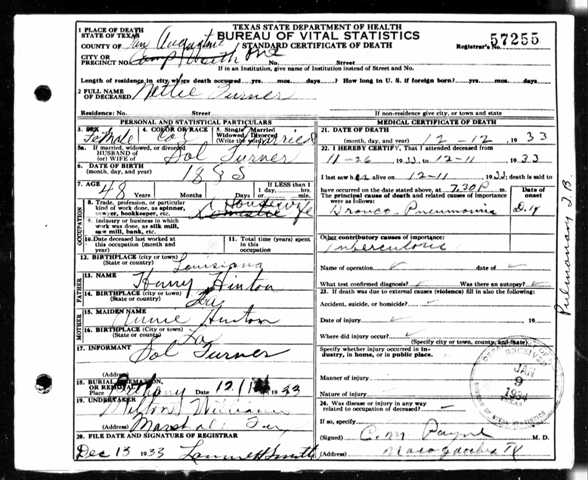 TEXAS STATE DEPARTMENT OF HEALTH
BUREAU OF VITAL STATISTICS
STANDARD CERTIFICATE OF DEATH
Registrar's No. 57255
1 PLACE OF DEATH
STATE OF TEXAS
COUNTY OF San Augustine
CITY OR
PRECINCT No. Street
If in an Institution, give name of Institution instead of Street and No.
Length of residence in city where death occurred yrs. mos. days. How long in U. S. if foreign born? yrs. mos. days.
2 FULL NAME
OF DECEASED Nettie Turner
Residence: No. Street
If non-residence give city, or town and state.
PERSONAL AND STATISTICAL PARTICULARS
3. SEX Female
4. COLOR OR RACE Col
5. Single Married
Widowed Divorced
(Write the word) Married
5a. If married, widowed, or divorced
HUSBAND OF
(or) WIFE OF Sol Turner
6. DATE OF BIRTH
(month, day, and year) 1885
7. AGE 48
Years Months Days
IF LESS than 1
day, hrs.
min.
OCCUPATION
8. Trade, profession, or particular
kind of work done, as spinner,
sawyer, bookkeeper, etc. Housewife
Domestic
9. Industry or business in which
work was done, as silk mill,
saw mill, bank, etc.
10. Date deceased last worked at
this occupation (month and
year)
11. Total time (years) spent
in this occupation
12. BIRTHPLACE (city or town)
(State or country) Louisiana
FATHER
13. NAME
Henry Hinton
14. BIRTHPLACE (City or town)
(State or country)
MOTHER
15. MAIDEN NAME
Annie Hinton
16. BIRTHPLACE (City or town)
(State or country)
17. INFORMANT
Sol Turner
18. BURIAL, CREMATION,
OR REMOVAL
Date 12/ 1933
19. UNDERTAKER
(Address) Marshall Tex
20. FILE DATE AND SIGNATURE OF REGISTRAR
Dec 13 1933 Smith
MEDICAL CERTIFICATE OF DEATH
21. DATE OF DEATH
(month, day, and year) 12-12, 1933
22. I HEREBY CERTIFY, That I attended deceased from
11-26 1933 12-11 1933
I last saw alive on 12-11 1933; death is said to
have occurred on the date stated above, at 7.30P m.
The principal cause of death and related causes of importance
were as follows:
Date of
onset
Bronco-Pneumonia
Other contributory causes of importance:
Tuberculosis
Name of operation date of
What test confirmed diagnosis? Was there an autopsy?
23. If death was due to external causes (violence) fill in also the following:
Accident, suicide, or homicide?
Date of injury 193
Where did injury occur?
(Specify city or town, county, and State)
Specify whether injury occurred in in-
dustry, in home, or in public place.
Manner of injury
Nature of injury
24. Was disease or injury in any way
related to occupation of deceased?
If so, specify
(Signed) Payne M. D.
(Address) Nacogdoches Tx
Pulmonary T.B.
JAN
9
1934